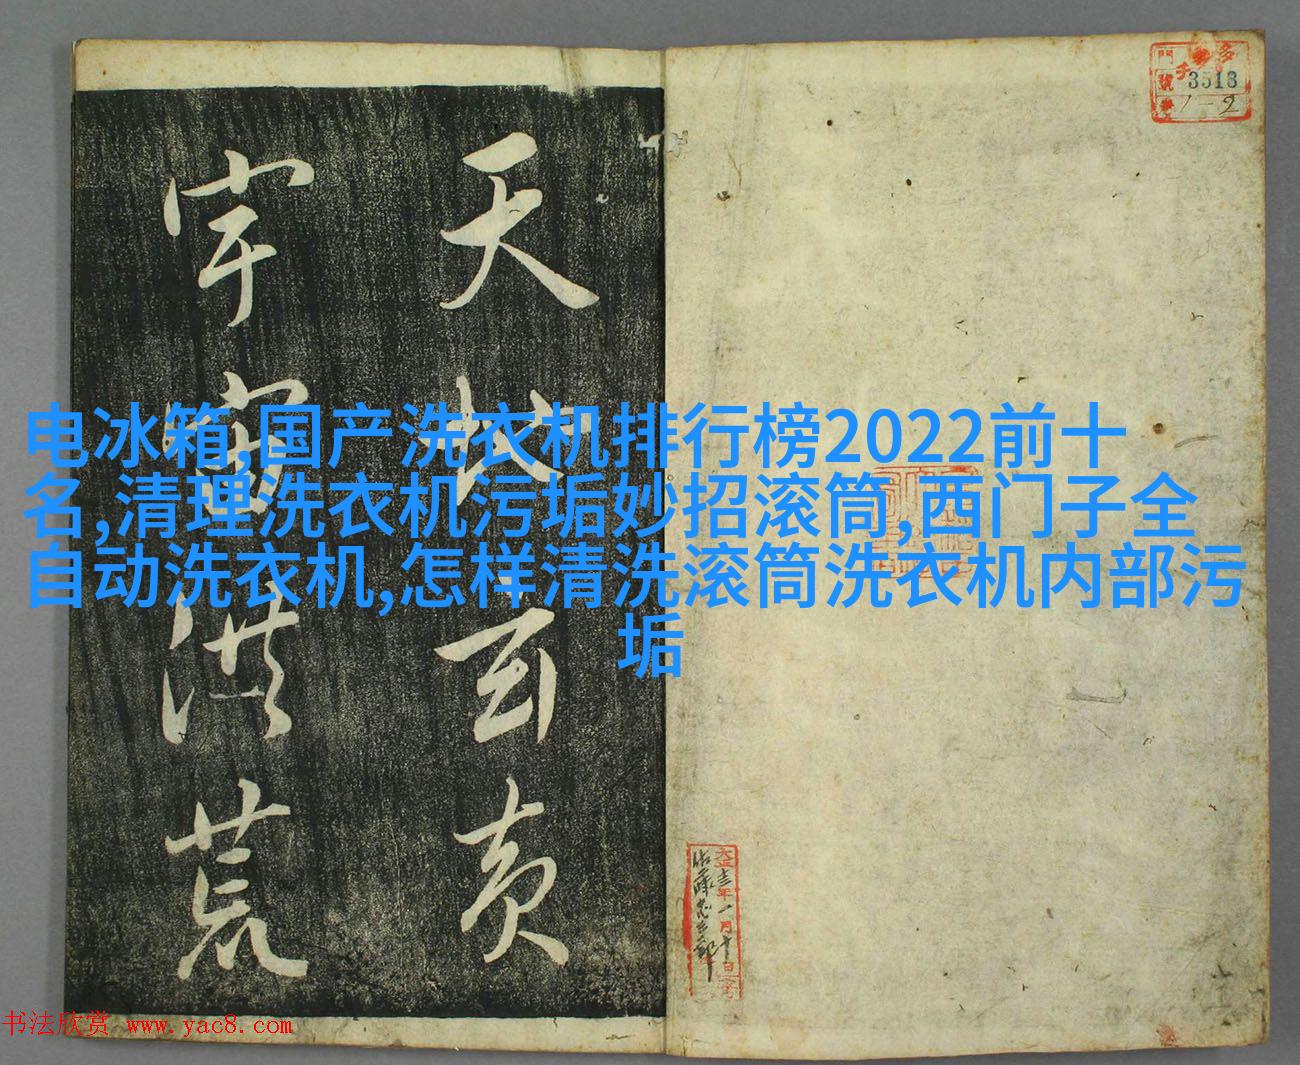 天地玄黄
宇宙洪荒
電冰箱,国产洗衣机排行榜2022前十
名,清理洗衣机污垢妙招滚筒,西门子全
自动洗衣机,怎样清洗滚筒洗衣机内部污
垢
3513
1-2
大正十三年一月十日
书法欣赏 www.yac8.com